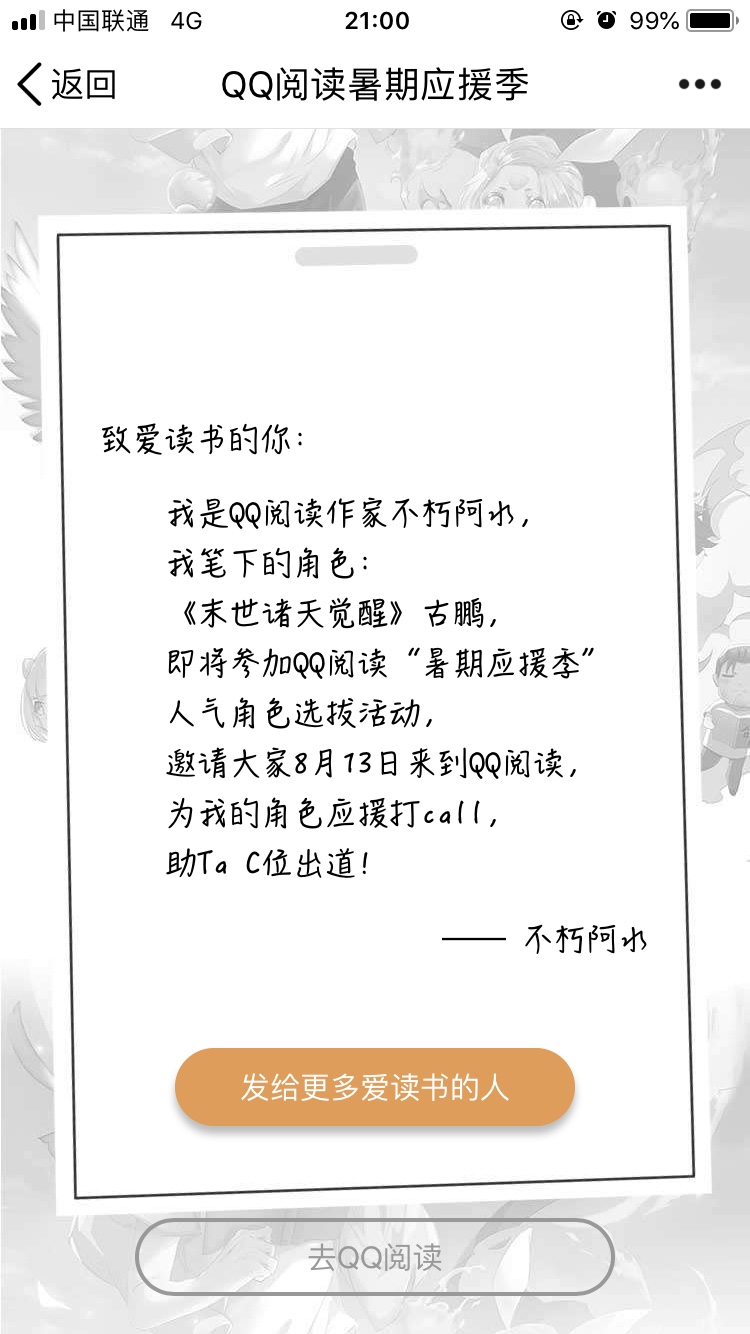 中国联通 4G 21:00 99%
返回 QQ阅读暑期应援季
致爱读书的你：
我是QQ阅读作家不朽阿水，
我笔下的角色：
《末世诸天觉醒》古鹏，
即将参加QQ阅读“暑期应援季”
人气角色选拔活动，
邀请大家8月13日来到QQ阅读，
为我的角色应援打call，
助Ta C位出道！
—— 不朽阿水
发给更多爱读书的人
去QQ阅读